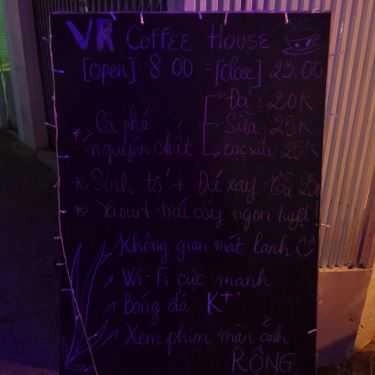 VR COFFEE HOUSE
[open] 8 00 - [close] 22.00
Đá : 20K
* Cà phê Sữa : 25K
nguyên chất cacao : 25K
* Sinh tố + Đá xay :
* Yaourt trái cây ngon tuyệt !
Không gian mát lành
Wi-Fi cực mạnh
Bóng đá K+
Xem phim màn ảnh
RỘNG